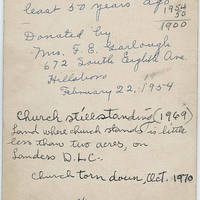 least 50 years ago
1954
50
1900
Donated by
Mrs. F. E. Garlough
672 South Eighth Ave
Hillsboro
February 22, 1954
Church still standing (1969)
Land where church stands is little
less than two acres, on
Landess D.L.C.
Church torn down, Oct. 1970